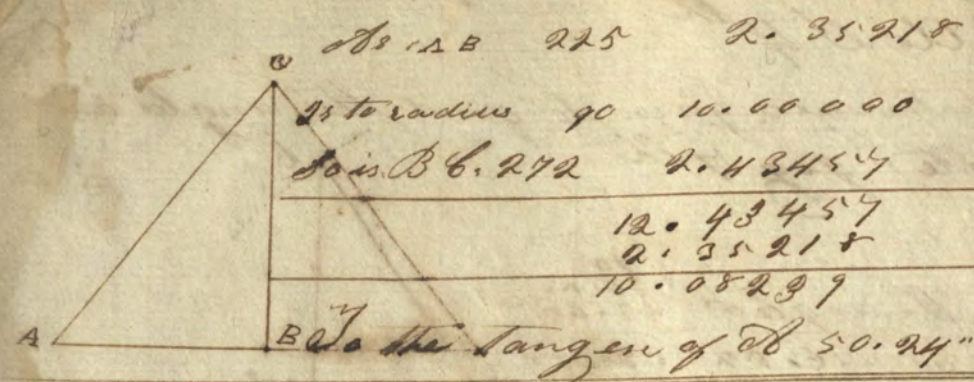 As is AB 225 2.35218
C
Is to radius 90 10.00000
So is BC. 272 2.43457
12.43457
2.35218
10.08239
A B To the Tangen of A 50.24"